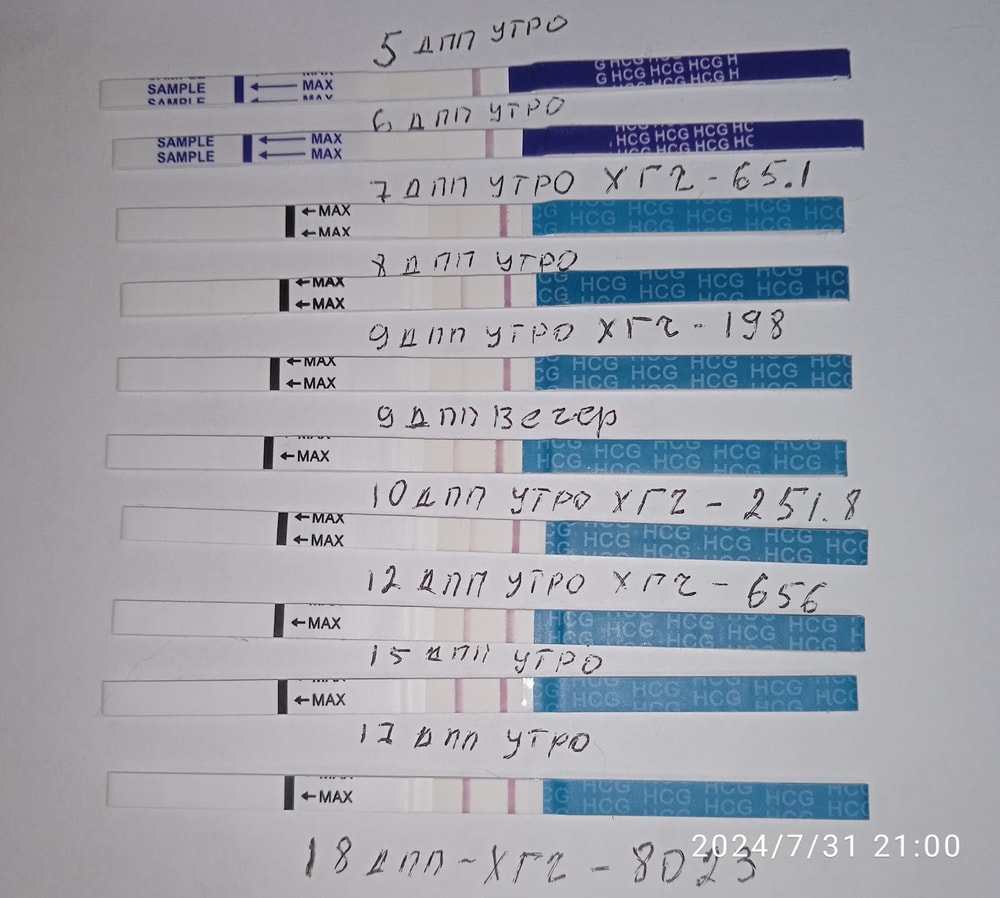 5 ДПП УТРО
SAMPLE MAX G HCG HCG HCG H
SAMPLE G HCG HCG HCG H
SAMPLE MAX
6 ДПП УТРО
SAMPLE MAX HCG HCG HCG HC
SAMPLE MAX HCG HCG HCG HC
7 ДПП УТРО ХГЧ - 65.1
←MAX HCG HCG HCG
←MAX HCG HCG HCG HC
8 ДПП УТРО
←MAX CG HCG HCG
←MAX HCG HCG HC
9 ДПП УТРО ХГЧ - 198
←MAX HCG HCG HCG
←MAX CG HCG HCG HC
9 ДПП Вечер
HCG HCG HCG
←MAX CG HCG HCG
10 ДПП УТРО ХГЧ - 251.8
←MAX CG HCG HCG
←MAX HCG HCG HCG
12 ДПП УТРО ХГЧ - 656
←MAX HCG HCG HCG H
15 ДПП УТРО
←MAX HCG HCG HCG
17 ДПП УТРО
←MAX CG HCG HCG HCG
2024/7/31 21:00
18 ДПП - ХГЧ - 8023